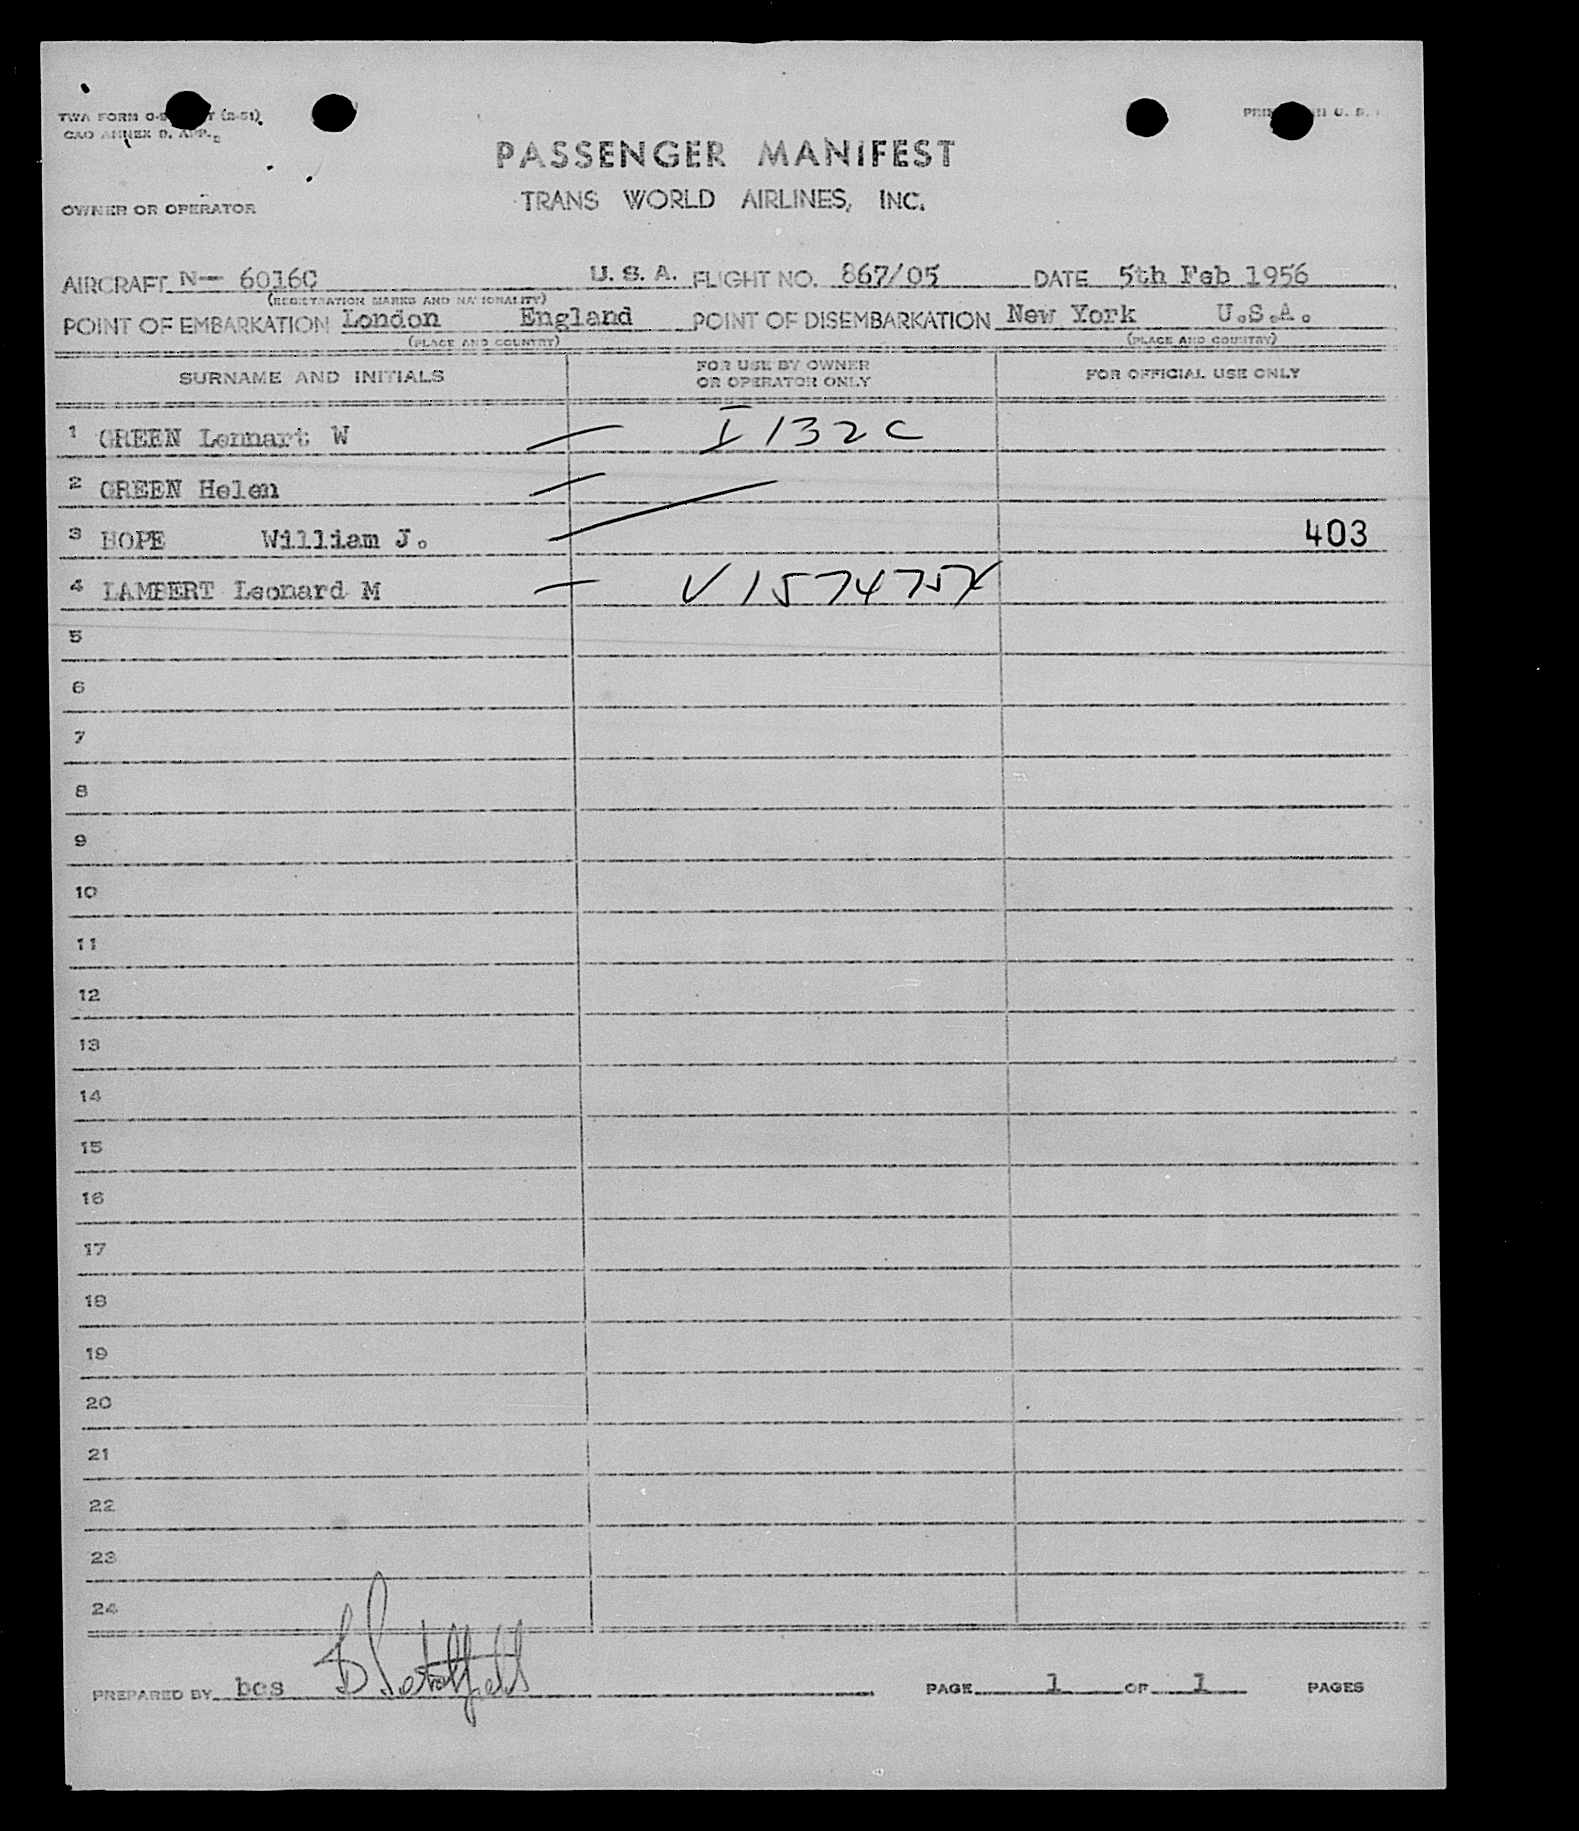 TWA FORM O- T (2-51)
CAO ANNEX 9, APP.
PASSENGER MANIFEST
TRANS WORLD AIRLINES, INC.
OWNER OR OPERATOR
AIRCRAFT N— 6016C U. S. A. FLIGHT NO. 867/05 DATE 5th Feb 1956
(REGISTRATION MARKS AND NATIONALITY)
POINT OF EMBARKATION London England POINT OF DISEMBARKATION New York U.S.A.
(PLACE AND COUNTRY) (PLACE AND COUNTRY)
SURNAME AND INITIALS FOR USE BY OWNER OR OPERATOR ONLY FOR OFFICIAL USE ONLY
1 GREEN Lennart W — I 132 C
2 GREEN Helen —
3 HOPE William J. — 403
4 LAMBERT Leonard M —
5
6
7
8
9
10
11
12
13
14
15
16
17
18
19
20
21
22
23
24
PREPARED BY bcs PAGE 1 OF 1 PAGES